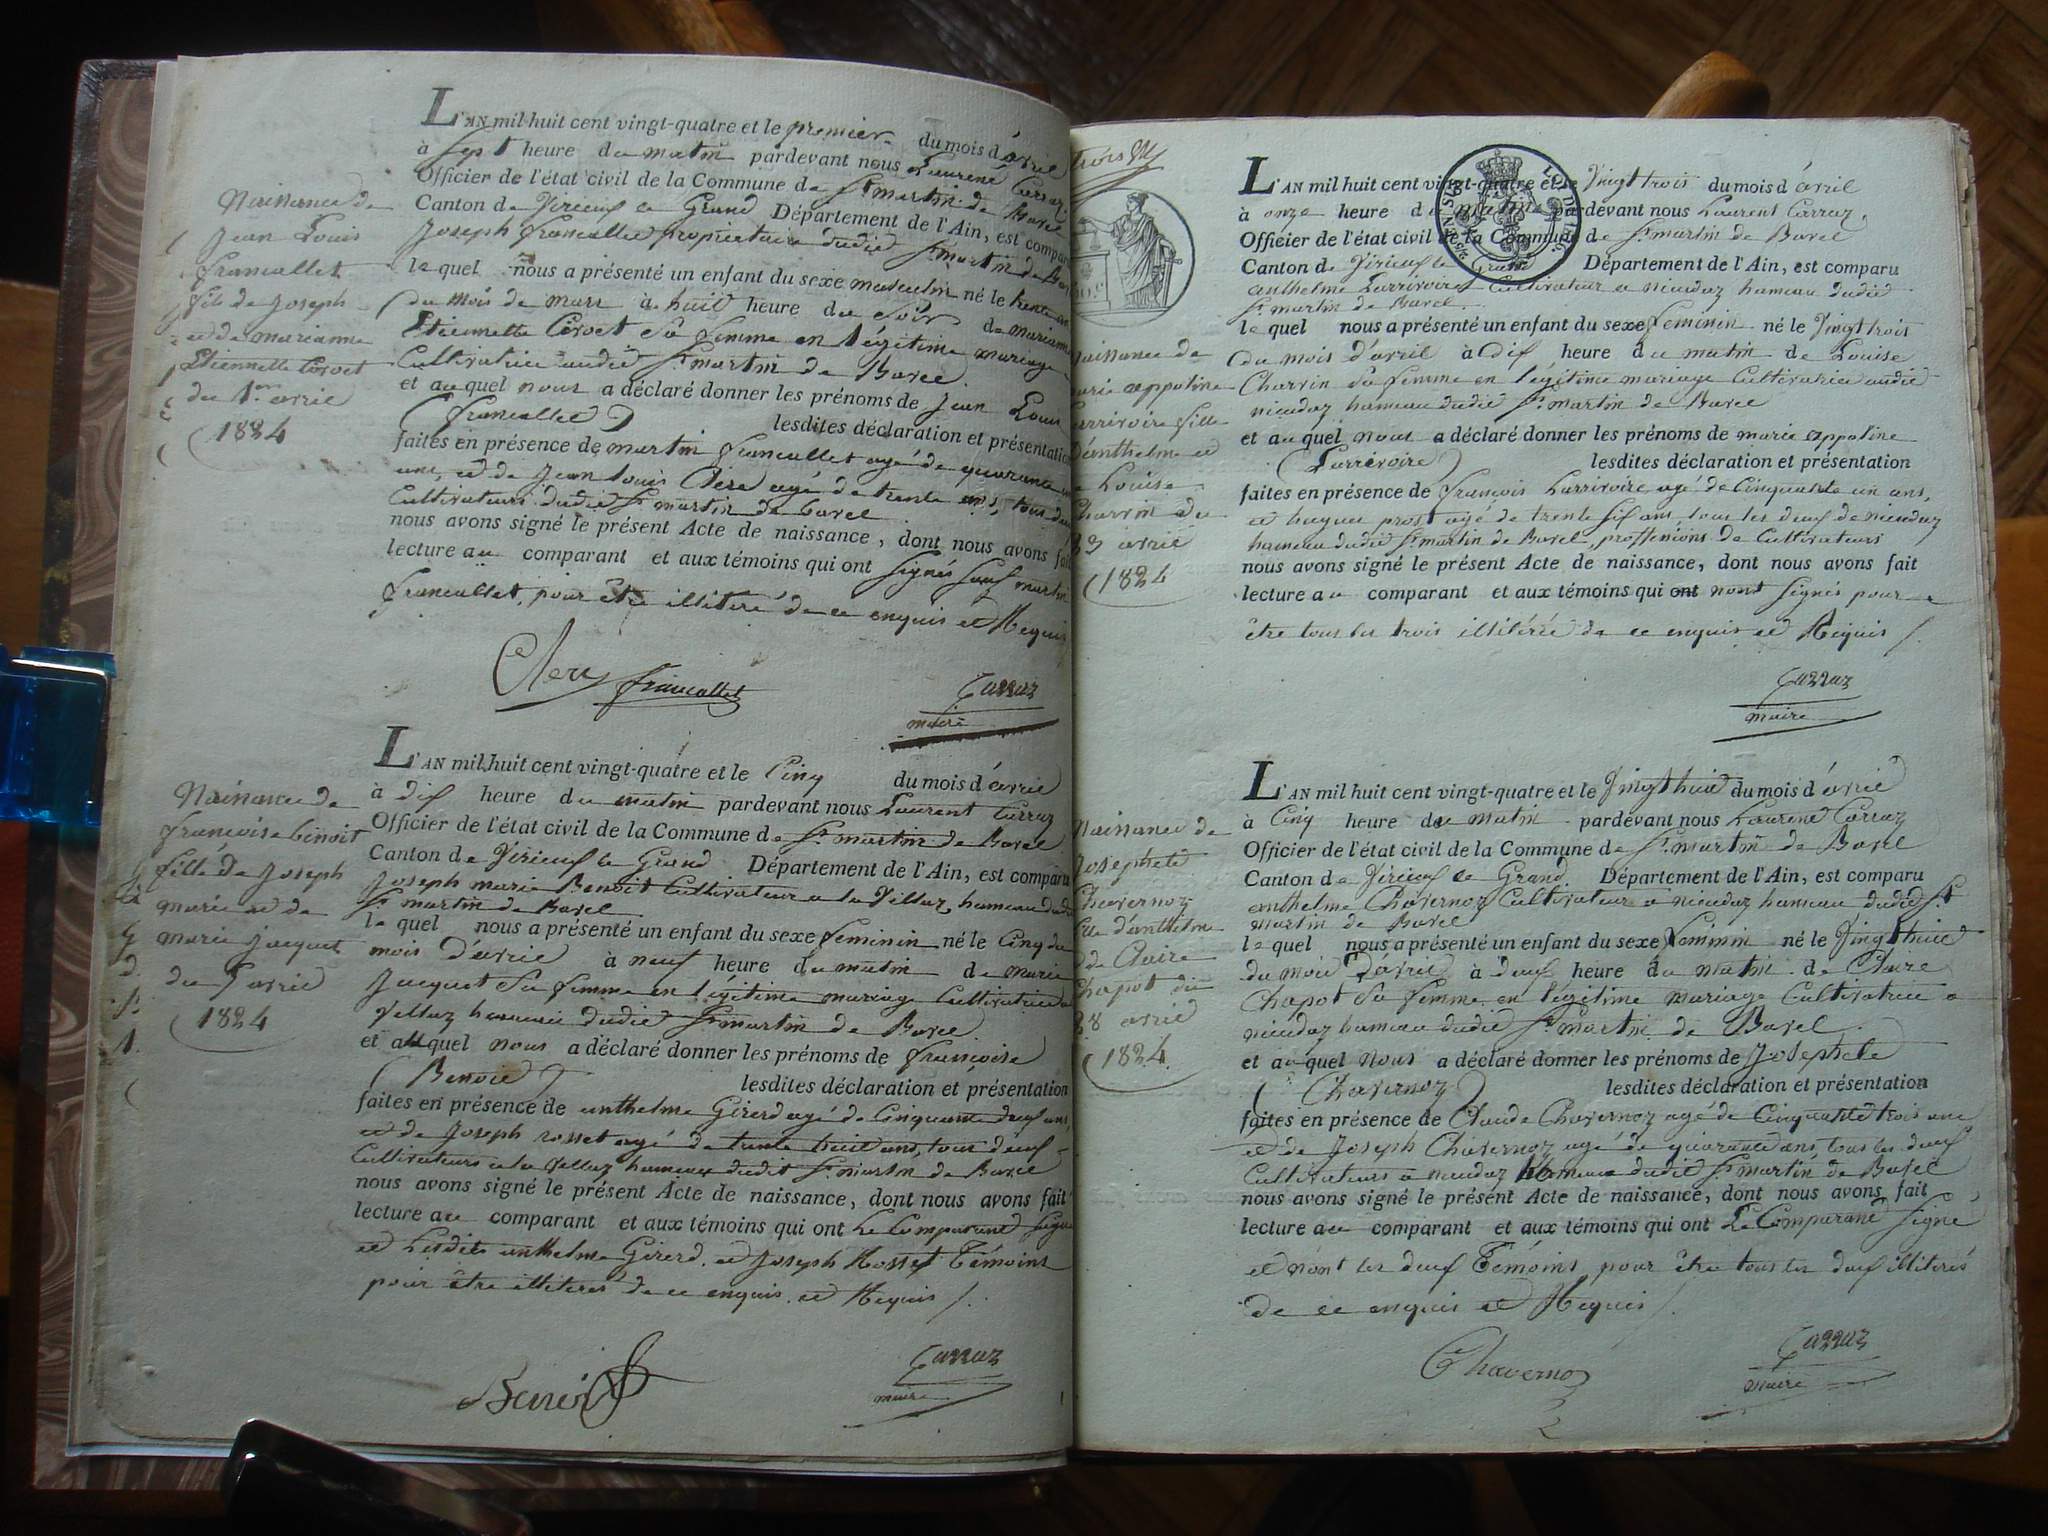 Naissance de
Jean Louis
francallet
fils de Joseph
et de marianne
Etiennette
du 1er avril
1824
L'AN mil huit cent vingt-quatre et le premier du mois d'avril
à Sept heure du matin pardevant nous Laurent Carraz
Officier de l'état civil de la Commune de St martin de Bavel
Canton de Virieux le Grand Département de l'Ain, est comparu
Joseph francallet propriétaire dudit St martin de
le quel nous a présenté un enfant du sexe masculin né le trente
du mois de mars à huit heure du soir de marianne
Etiennette sa femme en légitime mariage
Cultivatrice audit St martin de Bavel
et au quel nous a déclaré donner les prénoms de Jean Louis
(francallet) lesdites déclaration et présentation
faites en présence de martin francallet agé de quarante
ans, et de Jean Louis Clerc agé de trente ans, tous deux
Cultivateurs dudit St martin de bavel
nous avons signé le présent Acte de naissance, dont nous avons fait
lecture au comparant et aux témoins qui ont signés sauf martin
francallet, pour être illitéré de ce enquis et Requis
Clerc francallet Carraz
maire
Naissance de
francoise benoit
fille de Joseph
marie et de
marie jacquet
du 5 avril
1824
L'AN mil huit cent vingt-quatre et le Cinq du mois d'avril
à dix heure du matin pardevant nous Laurent Carraz
Officier de l'état civil de la Commune de St martin de Bavel
Canton de Virieux le Grand Département de l'Ain, est comparu
Joseph marie Benoit Cultivateur a la Vellaz hameau dudit
St martin de Bavel
le quel nous a présenté un enfant du sexe feminin né le Cinq du
mois d'avril à neuf heure du matin de marie
Jacquet sa femme en légitime mariage Cultivatrice a
Vellaz hameau dudit St martin de Bavel
et au quel nous a déclaré donner les prénoms de françoise
(Benoit) lesdites déclaration et présentation
faites en présence de anthelme Girerd agé de Cinquante deux ans
et de Joseph rosset agé de trente huit ans, tous deux
Cultivateurs a la Vellaz hameau dudit St martin de Bavel
nous avons signé le présent Acte de naissance, dont nous avons fait
lecture au comparant et aux témoins qui ont Le Comparant signé
et Lesdits anthelme Girerd et Joseph Rosset Témoins
pour être illiterés de ce enquis et Requis /.
Benoit Carraz
maire
trois
Naissance de
marie appoline
Larrivoire fille
d'anthelme et
de Louise
Charvin du
23 avril
1824
L'AN mil huit cent vingt-quatre et le Vingt trois du mois d'avril
à onze heure du matin pardevant nous Laurent Carraz,
Officier de l'état civil de la Commune de St martin de Bavel
Canton de Virieux le Grand Département de l'Ain, est comparu
anthelme Larrivoire Cultivateur a hameau dudit
St martin de Bavel
le quel nous a présenté un enfant du sexe feminin né le Vingt trois
du mois d'avril à dix heure du matin de Louise
Charvin sa femme en légitime mariage Cultivatrice audit
hameau dudit St martin de Bavel
et au quel nous a déclaré donner les prénoms de marie appoline
(Larrivoire) lesdites déclaration et présentation
faites en présence de françois Larrivoire agé de Cinquante un ans,
et prost agé de trente six ans, tous les deux de
hameau dudit St martin de Bavel, proffessions de Cultivateurs
nous avons signé le présent Acte de naissance, dont nous avons fait
lecture au comparant et aux témoins qui ont nont signés pour
être tous les trois illitérés de ce enquis et Requis /.
Carraz
maire
Naissance de
Josephete
Chavernoz
fille d'anthelme
et de Claire
Chapot du
28 avril
1824
L'AN mil huit cent vingt-quatre et le Vingt huit du mois d'avril
à Cinq heure du matin pardevant nous Laurent Carraz
Officier de l'état civil de la Commune de St martin de Bavel
Canton de Virieux le Grand Département de l'Ain, est comparu
anthelme Chavernoz Cultivateur a hameau dudit St
martin de Bavel
le quel nous a présenté un enfant du sexe feminin né le Vingt huit
du mois d'avril à deux heure du matin de Claire
Chapot sa femme en légitime mariage Cultivatrice a
hameau dudit St martin de Bavel
et au quel nous a déclaré donner les prénoms de Josephete
(Chavernoz) lesdites déclaration et présentation
faites en présence de Claude Chavernoz agé de Cinquante trois ans
et de Joseph Chavernoz agé de quarante ans, tous les deux
Cultivateurs a hameau dudit St martin de Bavel
nous avons signé le présent Acte de naissance, dont nous avons fait
lecture au comparant et aux témoins qui ont Le Comparant signé
et nont les deux Témoins pour être tous les deux illiterés
de ce enquis et Requis /.
Chavernoz Carraz
maire